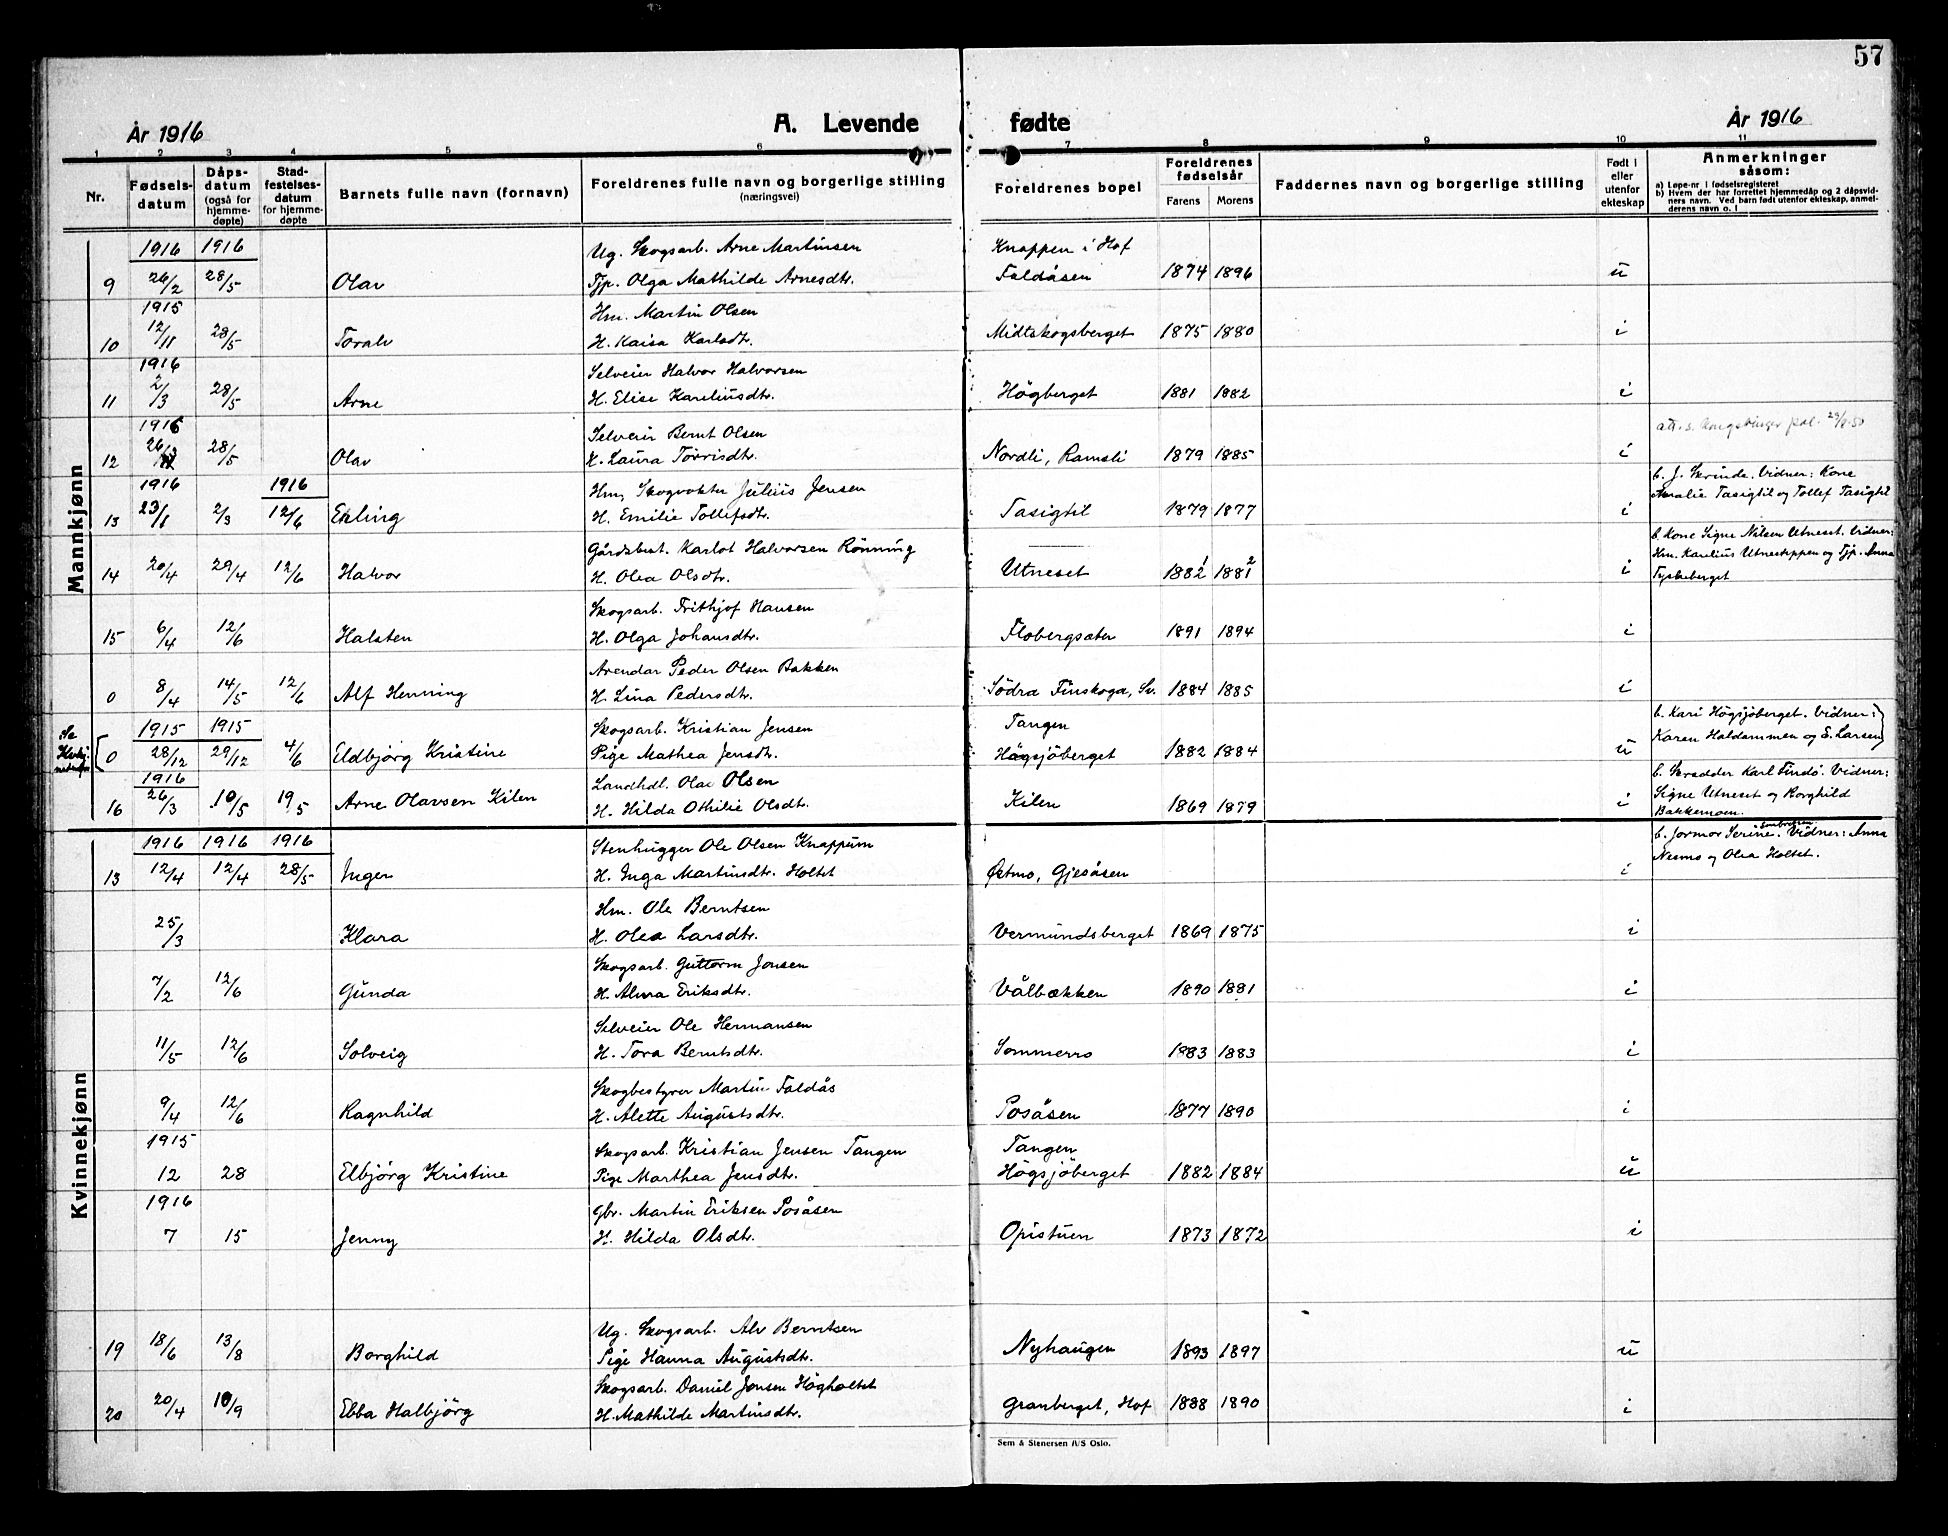 57
År 1916 A. Levende fødte År 1916
1 2 3 4 5 6 7 8 9 10 11
Nr. Fødsels-datum Dåps-datum (også for hjemme-døpte) Stad-festelses-datum for hjemme-døpte Barnets fulle navn (fornavn) Foreldrenes fulle navn og borgerlige stilling (næringsvei) Foreldrenes bopel Foreldrenes fødselsår Farens Morens Faddernes navn og borgerlige stilling Født i eller utenfor ekteskap Anmerkninger såsom:
a) Løpe-nr i fødselsregisteret
b) Hvem der har forrettet hjemmedåp og 2 dåpsvidners navn. Ved barn født utenfor ekteskap, anmelderens navn o. l
Mannkjønn
1916 1916 Ug. Skogsarb. Arne Martinsen Knappen i Hof
9 26/2 28/5 Olav Tjp. Olga Mathilde Arnesdtr. Faldåsen 1874 1896 u
1915 Hm. Martin Olsen
10 12/11 28/5 Toralv H. Kaisa Karlsdtr. Midtskogsberget 1875 1880 i
1916 Selveier Halvor Halvorsen
11 2/3 28/5 Arne H. Elise Kareliusdtr. Högberget 1881 1882 i
1916 Selveier Bernt Olsen
12 26/ 28/5 Olav H. Laura Torrisdtr. Nordli, Ramsli 1879 1885 i
att. s. Kongsvinger pol. 29/8-50
1916 1916 Hm, Skogvokter Julius Jensen b. J. Skrinde. Vidner: Kone
13 23/1 2/3 12/6 Erling H. Emilie Tollefsdtr. Tasigtil 1879 1877 i Amalie Tasigtil og Tollef Tasigtil
Gårdsbest. Karlot Halvorsen Rönning b. Kone Signe Nilsen Utneset. Vidner:
14 20/4 29/4 12/6 Halvor H. Olea Olsdtr. Utneset 1882 1 1881 2 i Hm. Karelius Utneseppen og Tjp. Anna
Tyskeberget
Skogsarb. Frithjof Hansen
15 6/4 12/6 Halsten H. Olga Johansdtr. Flobergsæter 1891 1894 i
Arendar Peder Olsen Bakken
0 8/4 14/5 12/6 Alf Henning H. Lina Pedersdtr. Södra Finskoga, Sv. 1884 1885 i
Se
1915 1915 Skogsarb. Kristian Jensen Tangen b. Kari Högsjöberget. Vidner:
0 28/12 29/12 4/6 Eldbjörg Kristine Pige Mathea Jensdtr. Högsjöberget 1882 1884 u Karen Haldammen og E. Larsen
1916 Landhdl. Olav Olsen b. Skredder Karl Findö. Vidner:
16 26/3 10/5 19 5 Arne Olavsen Kilen H. Hilda Othilie Olsdtr. Kilen 1869 1879 i Signe Utneset og Borghild
Bakkemoen.
Kvinnekjønn
1916 1916 1916 Stenhugger Ole Olsen Knappum b. Jormor Serine. Vidner: Anna
13 12/4 12/4 28/5 Inger H. Inga Martinsdtr. Holtet Østmo, Gjesåsen i Nesmo og Olea Holtet.
Hm. Ole Berntsen
25/3 Klara H. Olea Larsdtr. Vermundsberget 1869 1875 i
Skogsarb. Guttorm Jensen
7/2 12/6 Gunda H. Alvra Eriksdtr. Vålbækken 1890 1881 i
Selveier Ole Hermansen
11/5 12/6 Solveig H. Tora Berntsdtr. Sommerro 1883 1883 i
Skogbestyrer Martin Faldås
9/4 12/6 Ragnhild H. Alette Augustsdtr. Posåsen 1877 1890 i
1915 Skogsarb. Kristian Jensen Tangen Tangen
12 28 Elbjörg Kristine Pige Marthea Jensdtr. Högsjöberget 1882 1884 u
1916 Gbr. Martin Eriksen Posåsen
7 15 Jenny H. Hilda Olsdtr. Opistuen 1873 1872 i
Ug. Skogsarb. Alv Berntsen
19 18/6 13/8 Borghild Pige Hanna Augustsdtr. Nyhaugen 1893 1897 u
Skogsarb. Daniel Jensen Högholtet
20 20/4 10/9 Ebba Halbjörg H. Mathilde Martinsdtr. Granberget, Hof 1888 1890 i
Sem & Stenersen A/S Oslo.